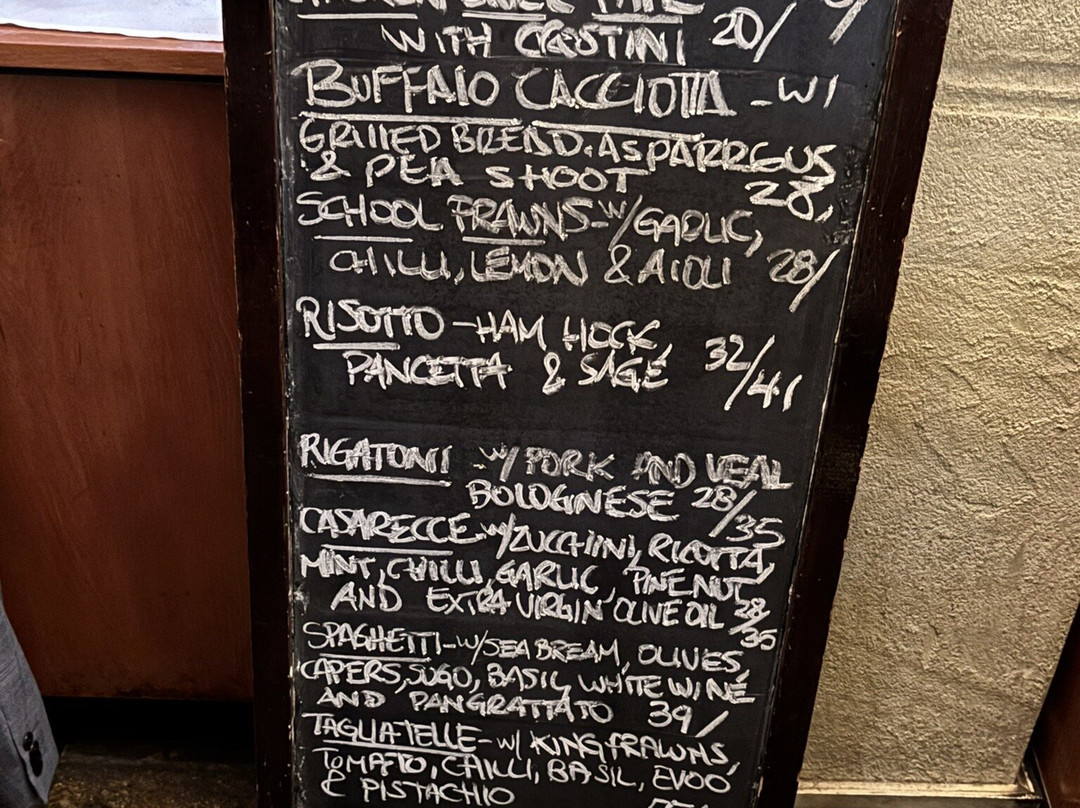 CHICKEN LIVER PATE
WITH CROSTINI 20/
BUFFALO CACCIOTTA - W/
GRILLED BREAD. ASPARRGUS
& PEA SHOOT 28,
SCHOOL PRAWNS - W/ GARLIC,
CHILLI, LEMON & AIOLI 28/
RISOTTO - HAM HOCK,
PANCETTA & SAGE 32/41
RIGATONI - W/ PORK AND VEAL
BOLOGNESE 28/35
CASARECCE - W/ ZUCCHINI, RICOTTA,
MINT, CHILLI, GARLIC, PINENUT
AND EXTRA VIRGIN OLIVE OIL 28/35
SPAGHETTI - W/ SEA BREAM, OLIVES,
CAPERS, SUGO, BASIL, WHITE WINE
AND PANGRATTATO 39/
TAGLIATELLE - W/ KING PRAWNS,
TOMATO, CHILLI, BASIL, EVOO
& PISTACHIO